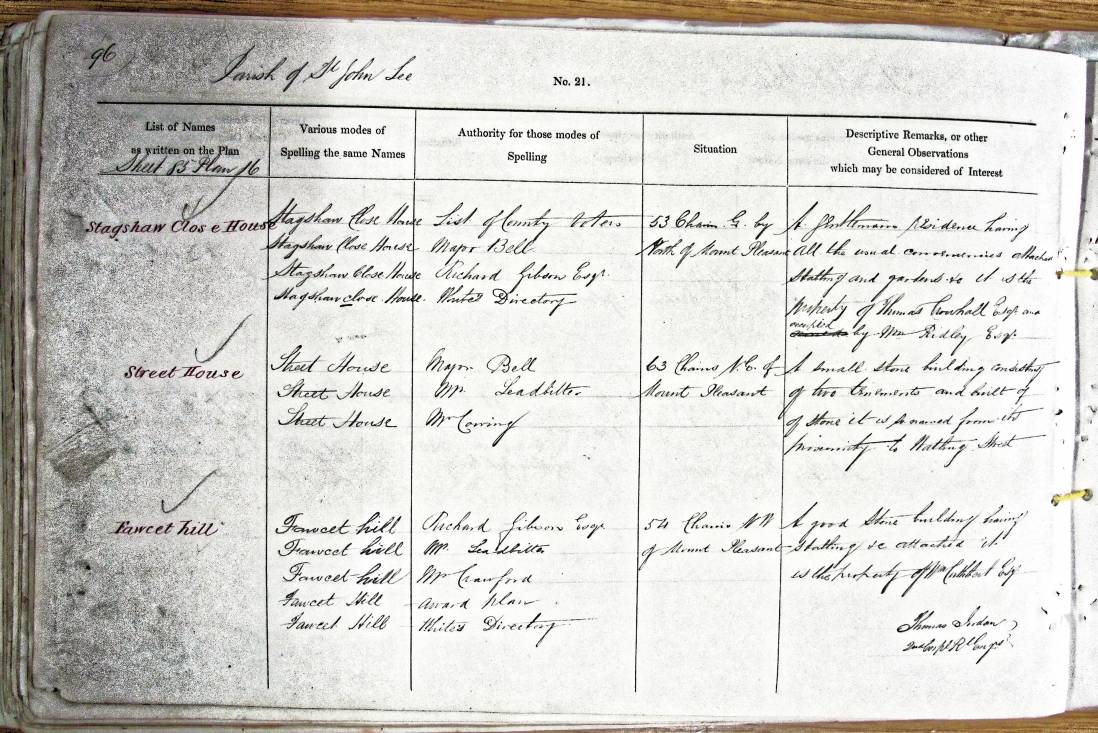 96
Parish of St John Lee
No. 21.
List of Names
as written on the Plan
Sheet 85 Plan 16
Various modes of
Spelling the same Names
Authority for those modes of
Spelling
Situation
Descriptive Remarks, or other
General Observations
which may be considered of Interest
Stagshaw Close House
Stagshaw Close House
Stagshaw Close House
Stagshaw Close House
Stagshaw close House
List of County Voters
Major Bell
Richard Gibson Esqr.
White's Directory
53 Chains E. by
North of Mount Pleasant
A Gentlemans residence having
all the usual conveniences attached
Stabling and gardens &c it is the
property of Thomas Esqr and
occupied by Wm Ridley Esqr.
Street House
Street House
Street House
Street House
Major Bell
Mr. Leadbitter
Mr
63 Chains N.E. of
Mount Pleasant
A small stone building consisting
of two tenements and built of
of stone it is so named from its
proximity to Watling Street
Fawcet hill
Fawcet hill
Fawcet hill
Fawcet hill
Fawcet Hill
Fawcet Hill
Richard Gibson Esqr
Mr. Leadbitter
Mr Crawford
award plan
White's Directory
54 Chains NW
of Mount Pleasant
A good Stone building having
stabling &c attached it
is the property of Wm Cuthbert Esqr
Thomas Jordan
2nd Corpl Rl Engrs